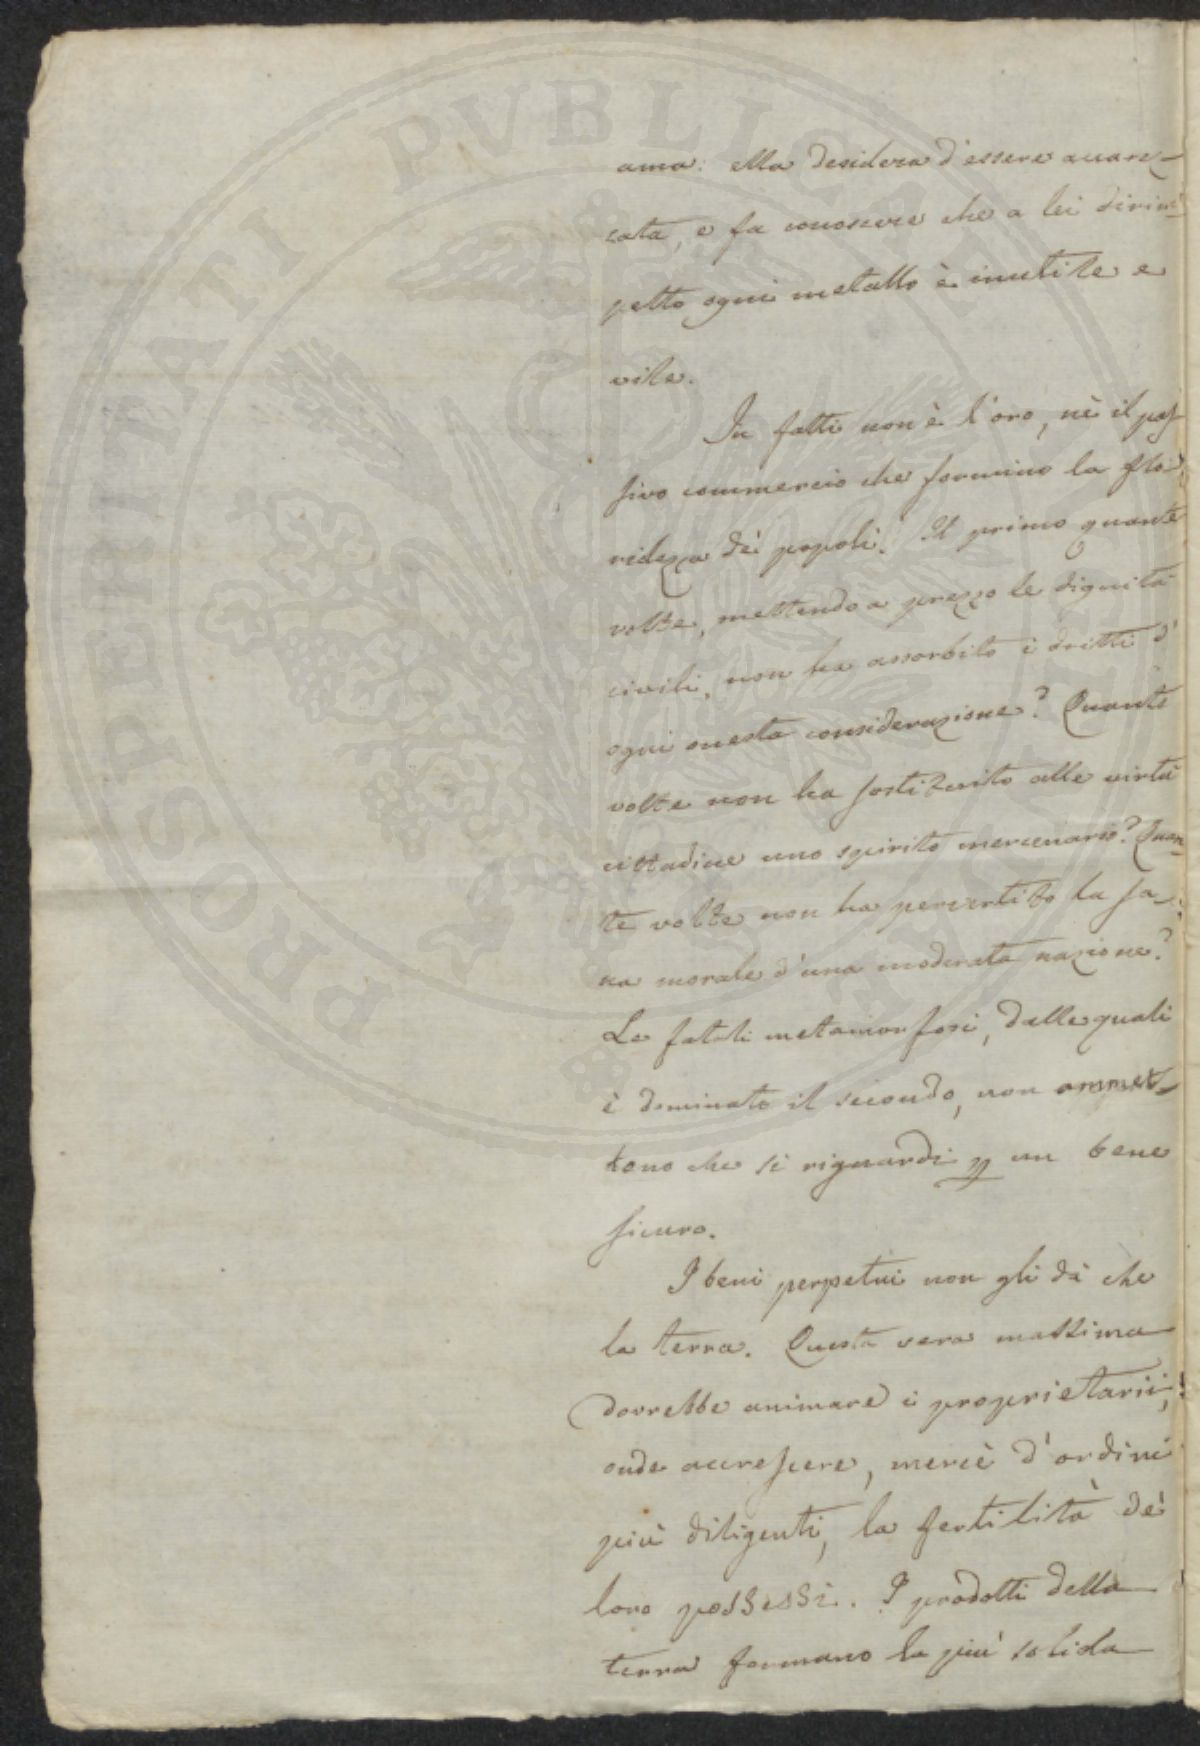 PROSPERITATI PVBLICAE
ama: ella desidera d'essere accarez-
zata, e fa conoscere che a lei dirim-
petto ogni metallo è inutile e
vile.
In fatti non è l'oro, nè il pas-
sivo commercio che formino la flo-
ridezza de' popoli. Il primo quante
volte, mettendo a prezzo le dignità
civili, non ha assorbito i dritti d'
ogni onesta considerazione? Quante
volte non ha sostituito alle virtù
cittadine uno spirito mercenario? Quan-
te volte non ha pervertito la sa-
na morale d'una moderata nazione?
Le fatali metamorfosi, dalle quali
è dominato il secondo, non ammet-
tono che si riguardi p un bene
sicuro.
I beni perpetui non gli dà che
la terra. Questa vera massima
dovrebbe animare i proprietarii,
onde accrescere, mercè d'ordini
più diligenti, la fertilità de'
loro possessi. I prodotti della
terra formano la più solida